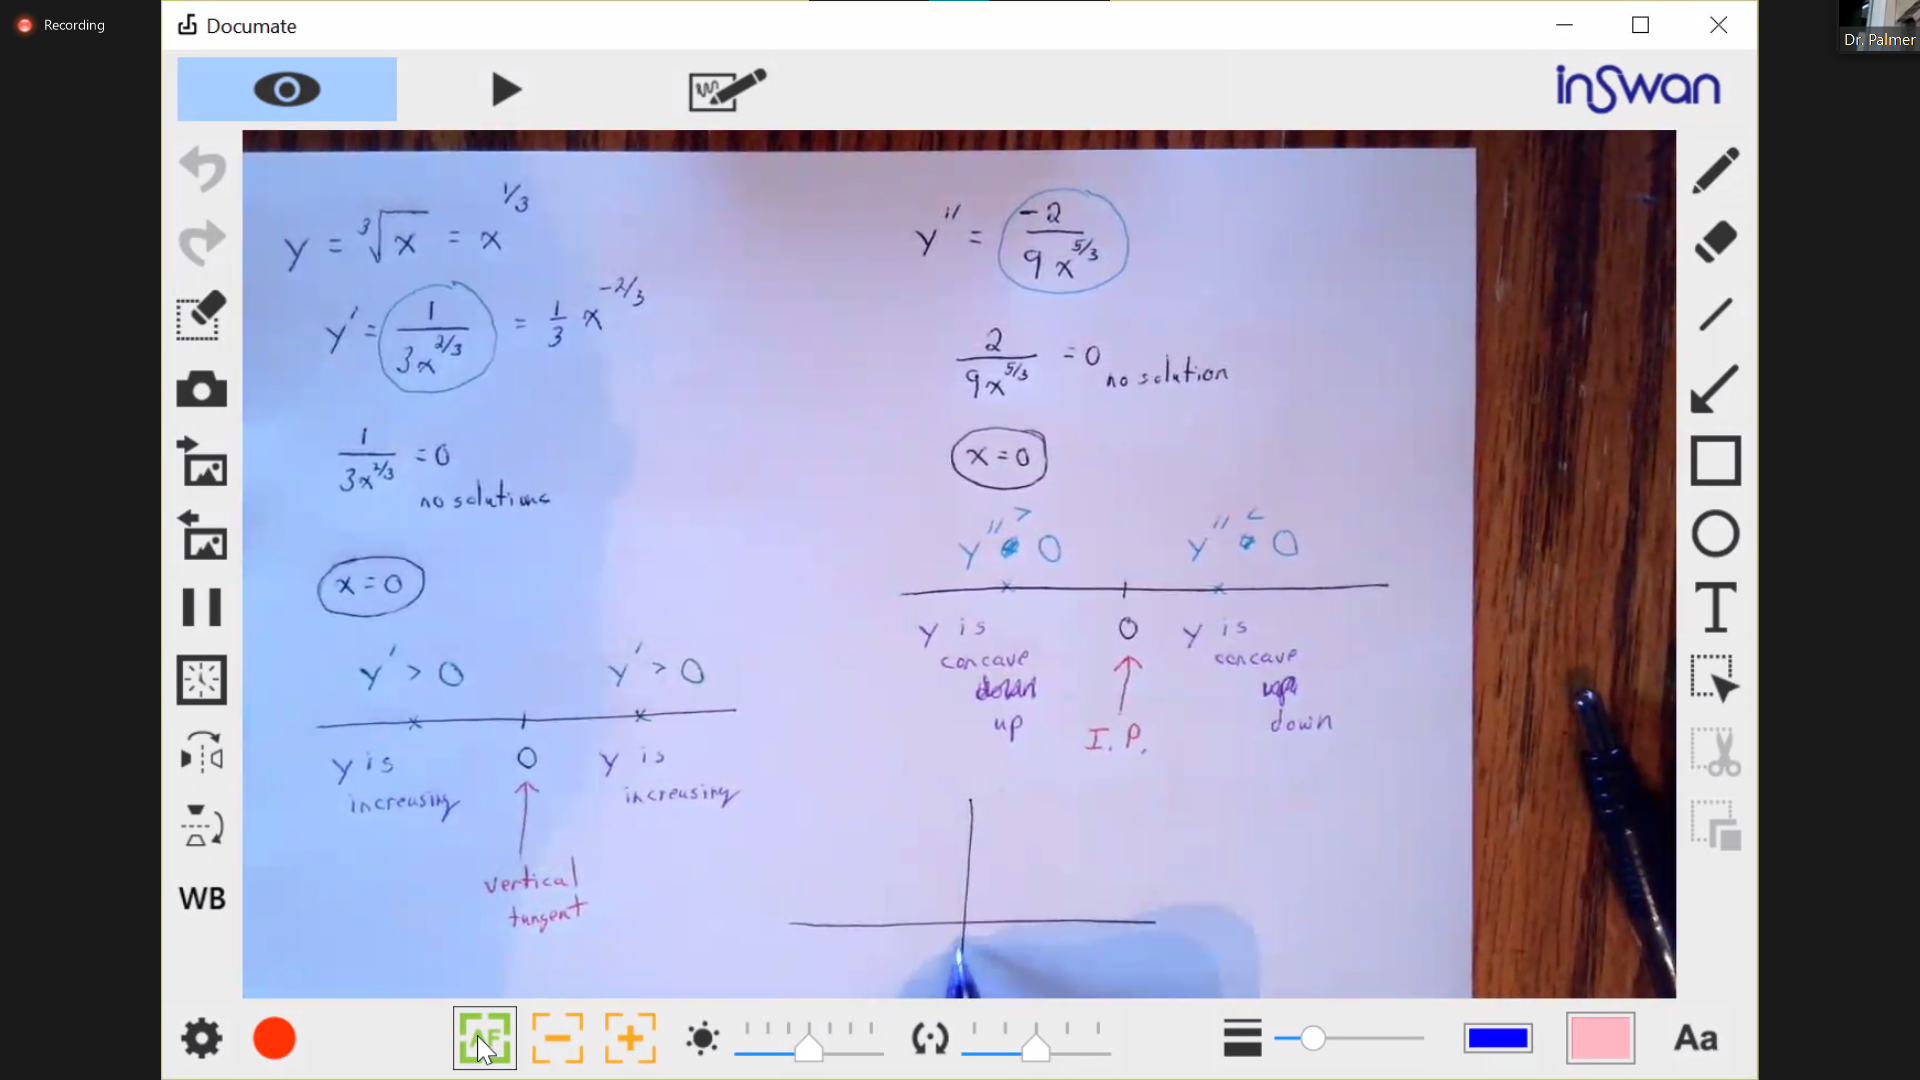 Recording
Documate
Dr. Palmer
inSwan
y = ∛x = x^1/3
y' = 1/3x^2/3 = 1/3 x^-2/3
1/3x^2/3 = 0
no solutions
x = 0
y' > 0 y' > 0
0
y is increasing
y is increasing
vertical
tangent
y'' = -2/9x^5/3
2/9x^5/3 = 0
no solution
x = 0
y'' > 0 y'' < 0
0
y is
concave
down
up
I.P.
y is
concave
up
down
WB
T
AF
Aa